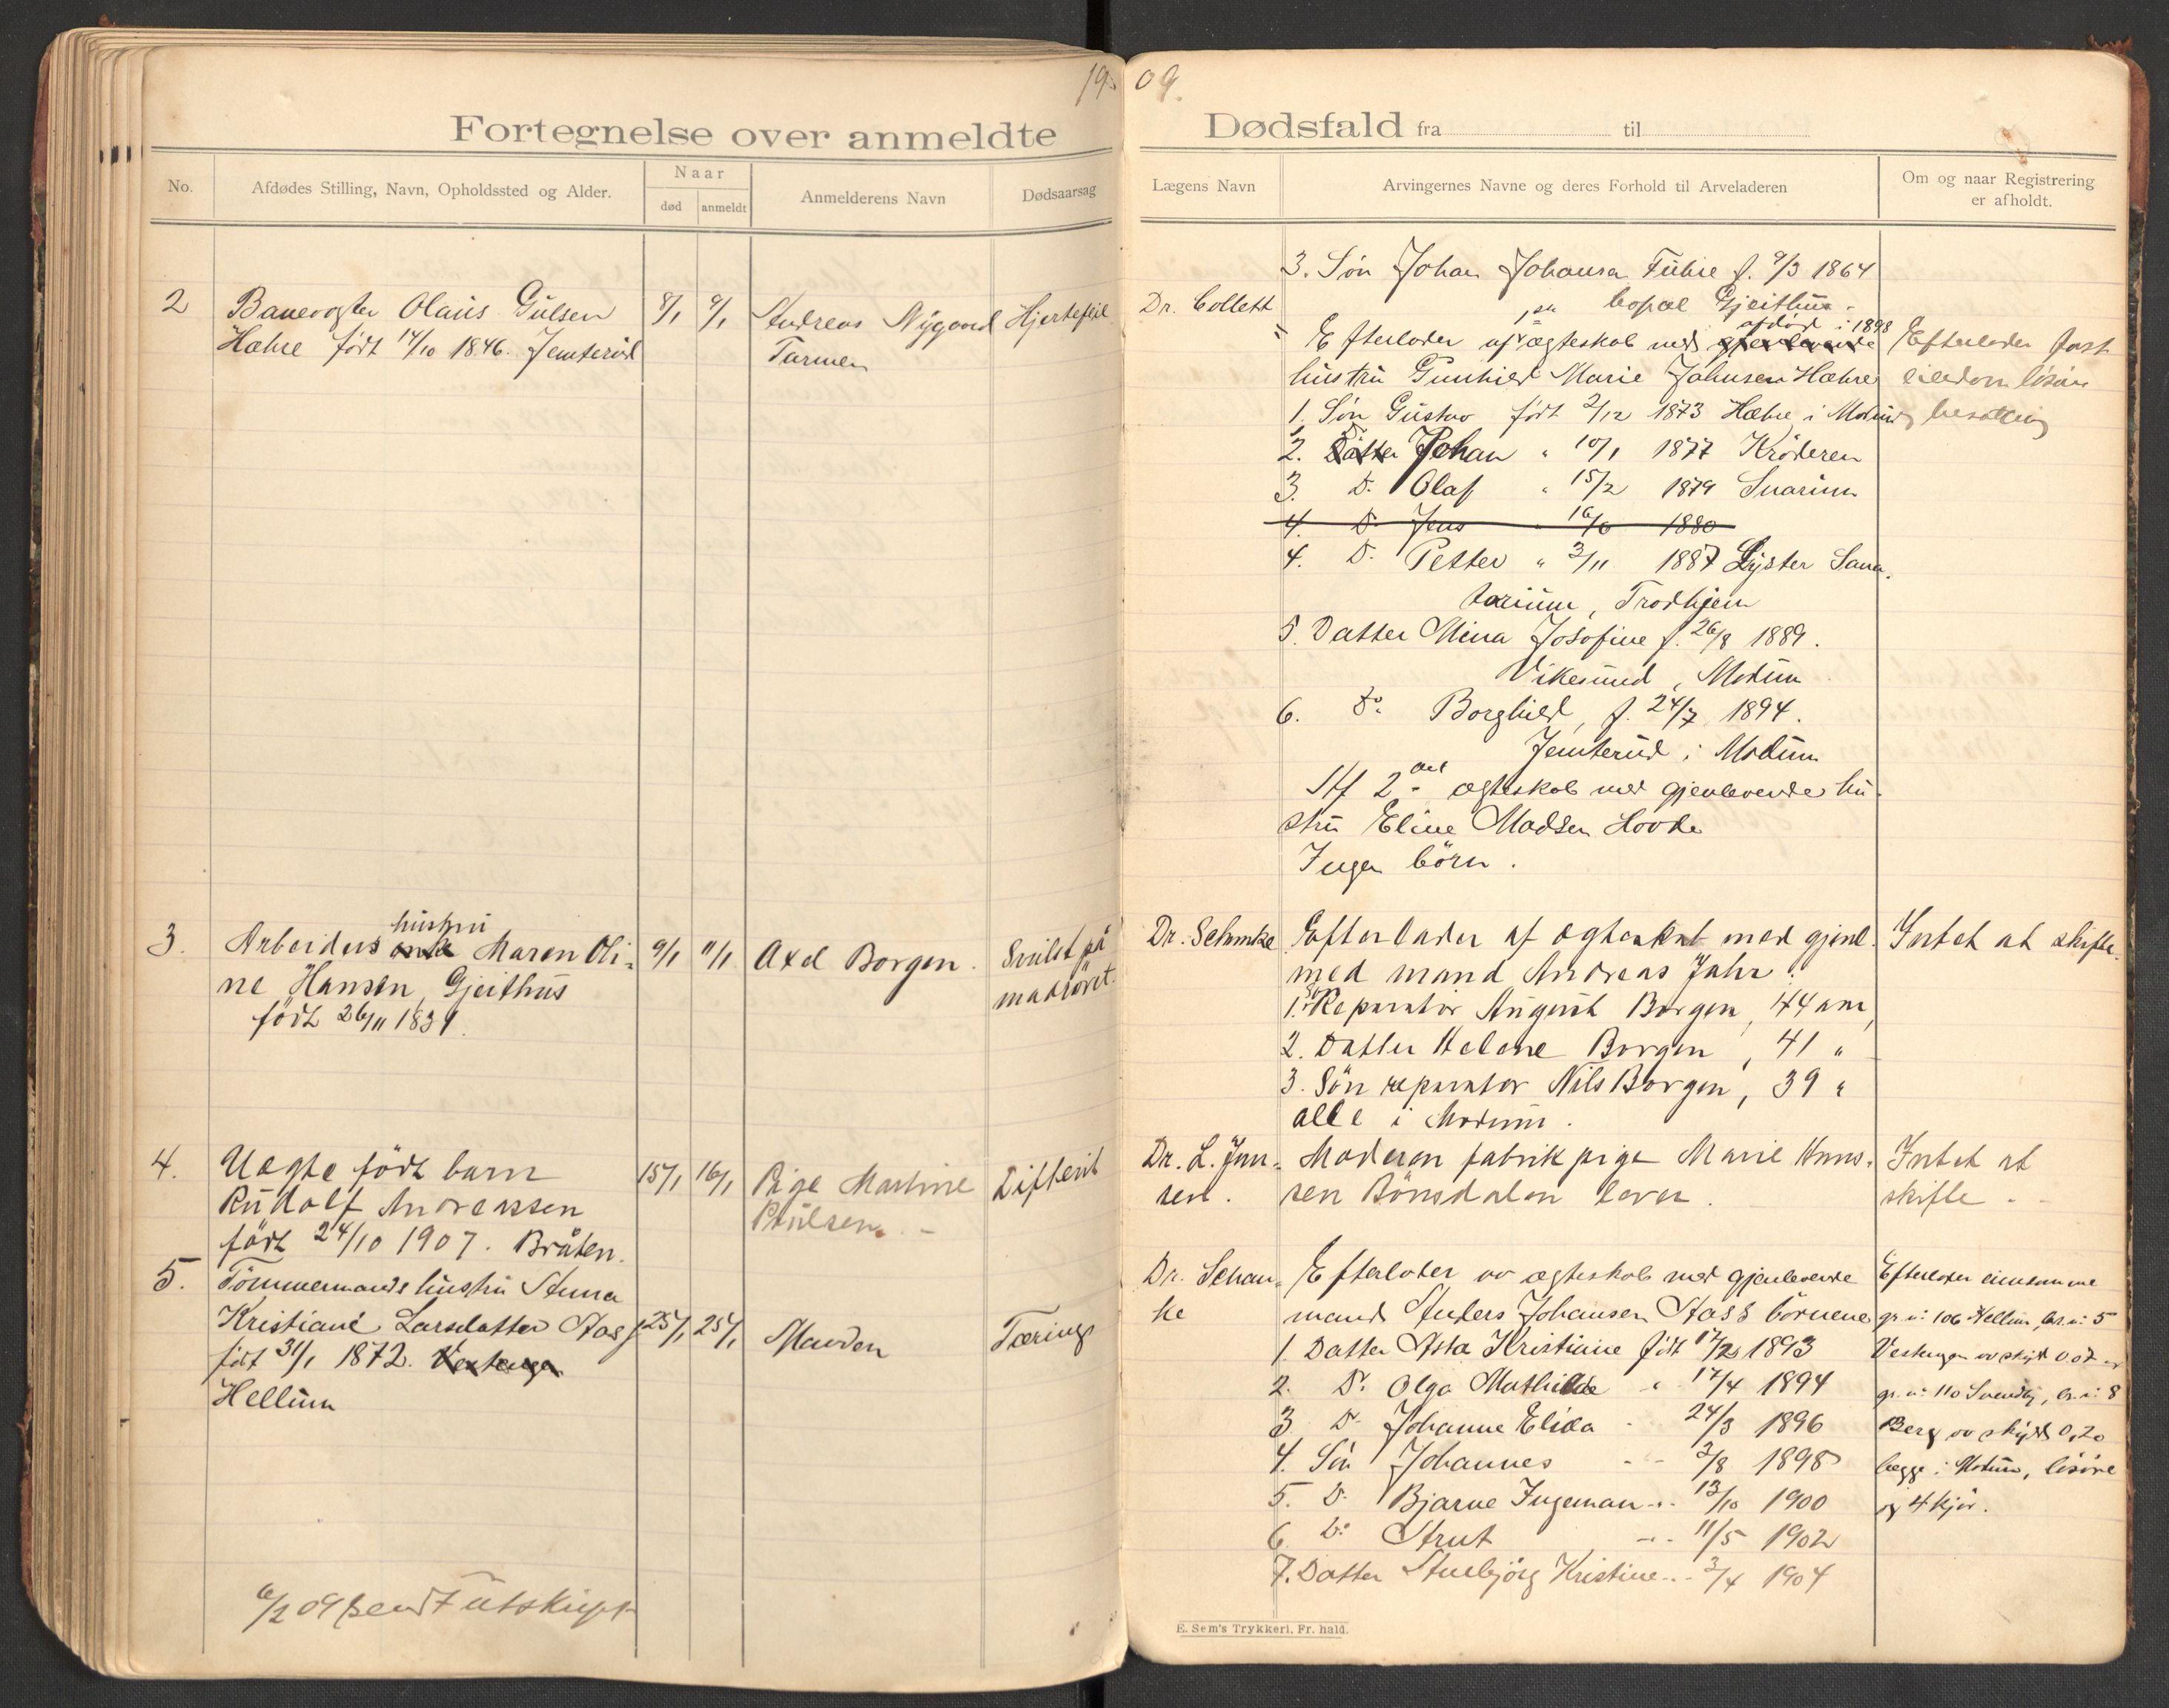 19
Fortegnelse over anmeldte
No.
Afdødes Stilling, Navn, Opholdssted og Alder.
Naar
død
anmeldt
Anmelderens Navn
Dødsaarsag
2
Banevogter Olaus Gulsen
Hæhre født 14/10 1846. Jemterud
8/1
9/1
Andreas Nygaard
Hjertefeil
3.
Arbeiders enke hustru Maren Oli-
ne Hansen, Gjeithus
født 26/11 1831.
9/1
11/1
Axel Borgen.
Svulst på
madröret.
4.
Uægte födt barn
Rudolf Andreassen
födt 24/10 1907. Bråten.
15/1
16/1
Pige Martine
Paulsen. -
Difterit
5.
Tömmermands hustru Anna
Kristiane Larsdatter Aas
født 31/1 1872. Vestengen
Hellum
25/1
25/1
Manden
Tærings
6/2 09 sendt utskrift
09.
Dødsfald fra til
Lægens Navn
Arvingernes Navne og deres Forhold til Arveladeren
Om og naar Registrering
er afholdt.
3. Sön Johan Johansen f. 9/3 1864
bopæl Gjeithus
Dr. Collett
Efterlader af ægteskab med gjenlevende afdød i 1898
hustru Gunhild Marie Johnsen Hæhre
1. Sön Gustav født 2/12 1873 Hæhre i Modum
2. Datter D. Johan " 10/1 1877 Kröderen
3. D. Olaf " 15/2 1879 Snarum
4. D. Jens 16/6 1880
4. D. Petter " 3/11 1887 Lyster Sana-
torium, Trodhjem
5. Datter Mina Josofine f. 26/8 1889.
Vikesund, Modum
6. Do Borghild, f. 24/7 1894.
Jemterud i Modum
Af 2det ægteskab med gjenlevende hu-
stru Eline Madsen Hovde
Ingen börn.
Efterlader fast
eiendom lösöre
besætning
Dr. Schanke
Efterlader af ægteskab med gjenl.
med mand Andreas Jahr
1. Sön Reparatör August Borgen, 44 aar,
2. Datter Helene Borgen, 41 "
3. Sön reparatör Nils Borgen, 39 "
alle i Modum.
Intet at skifte.
Dr. L. Jen-
sen.
Moderen fabrikpige Marie Hans-
sen Bönsdalen lever.
Intet at
skifte. -
Dr. Schan-
ke
Efterlader av ægteskab med gjenlevende
mand Anders Johansen Aass börnene
1 Datter Asta Kristiane født 17/2 1893
2. D. Olga Mathilde " 17/4 1894
3 D. Johanne Elida - 24/3 1896
4. Sön Johannes - - 2/8 1898
5. D. Bjarne Ingeman - - 13/10 1900
6 Do Arnt - - 11/5 1902
7. Datter Annbjörg Kristine - - 3/4 1904
Efterlader eiendommene
gr. n: 106 Hellum, br. n: 5
Vestengen av skyld 0.07 og
gr. n: 110 Svendby, br. n: 8
Berg av skyld 0,20
begge i Modum, lösöre
og 4 kjör.
E. Sem's Trykkeri. Fr. hald.